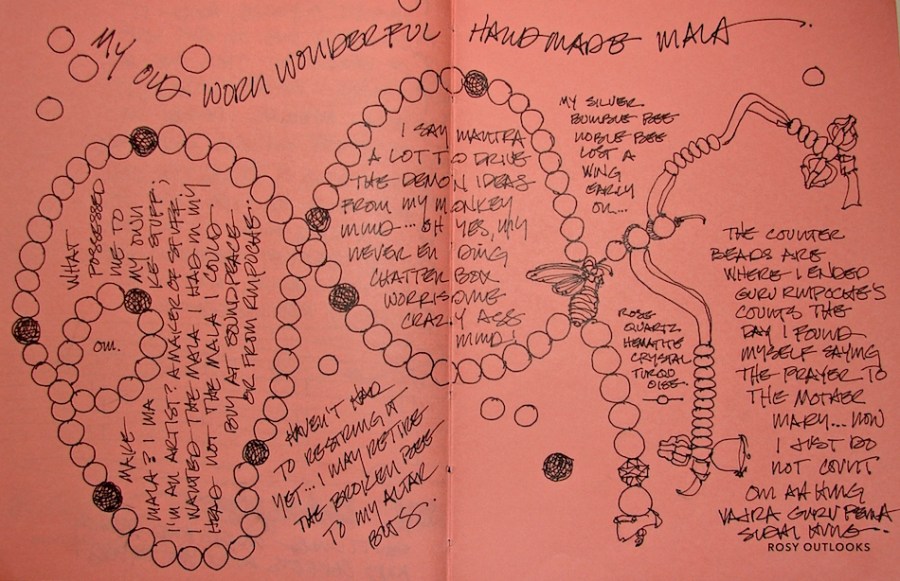 MY OLD WORN WONDERFUL HANDMADE MALA
WHAT
POSSESSED
ME TO
MAKE MY OWN
MALA? I'M A RE STUFF;
I'M AN ARTIST? A MAKER OF STUFF,
I WANTED THE MALA I HAD IN MY
HEAD NOT THE MALA I COULD
BUY AT SOUNDPEACE
OR FROM RINPOCHE.
OM.
I SAY MANTRA
A LOT TO DRIVE
THE DEMON IDEAS
FROM MY MONKEY
MIND... OH YES, MY
NEVER ENDING
CHATTER BOX
WORRISOME
CRAZY ASS
MIND!
HAVEN'T HAD
TO RESTRING IT
YET... I MAY RETIRE
THE BROKEN BEE
TO MY ALTAR
MY SILVER
BUMBLE BEE
NOBLE BEE
LOST A
WING
EARLY
ON...
ROSE
QUARTZ
HEMATITE
CRYSTAL
TURQU
OISE.
THE COUNTER
BEADS ARE
WHERE I ENDED
GURU RINPOCHE'S
COUNTS THE
DAY I FOUND
MYSELF SAYING
THE PRAYER TO
THE MOTHER
MARY... NOW
I JUST DO
NOT COUNT
OM AH HUNG
VAJRA GURU PEMA
SIDDHI HUNG
ROSY OUTLOOKS